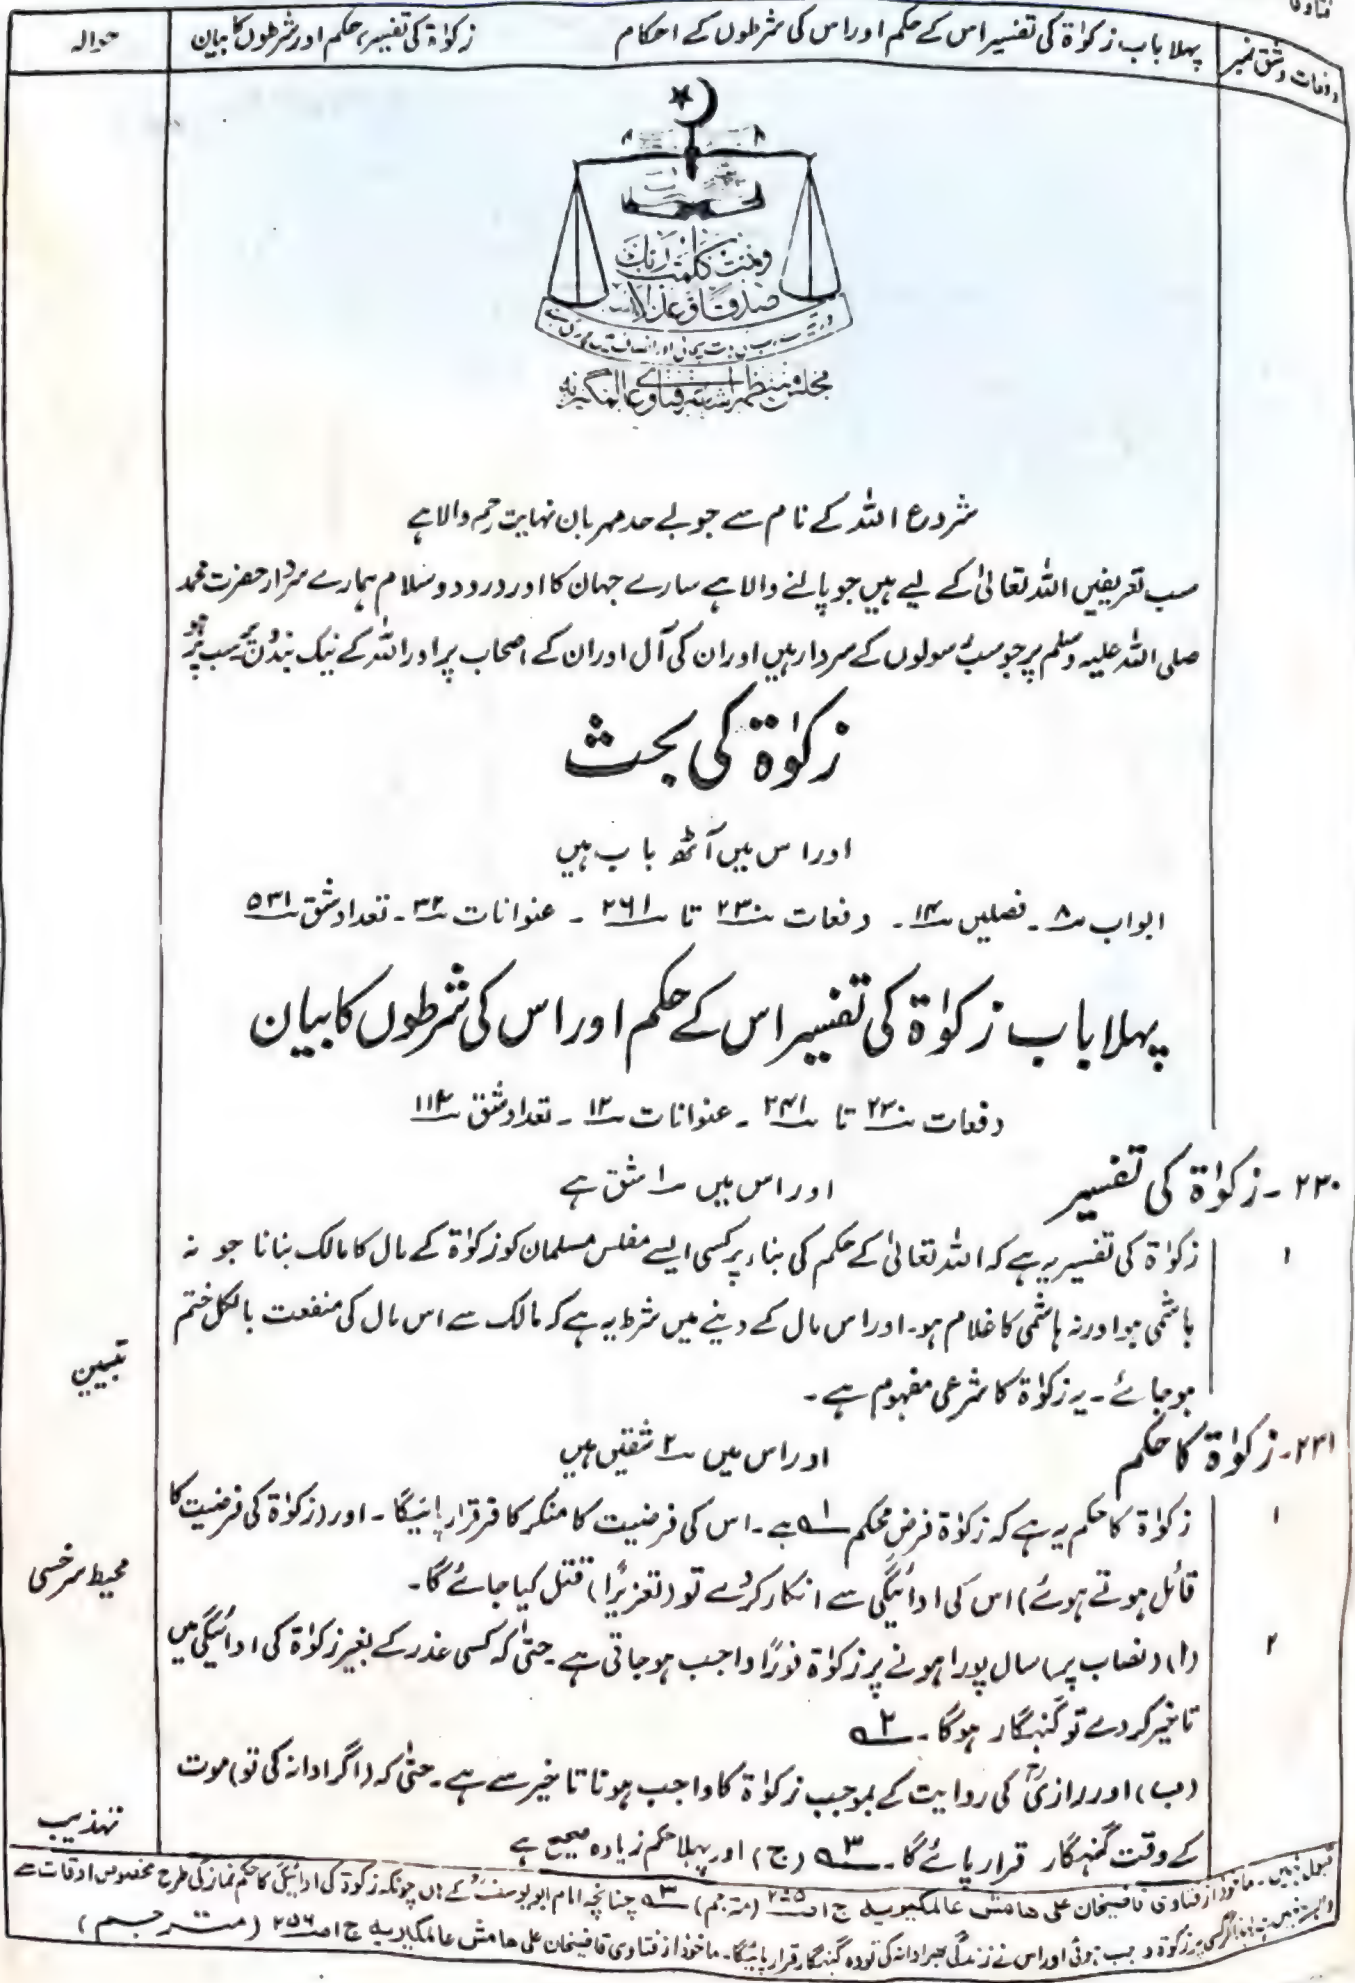 فتاویٰ
دفعات و شق نمبر
پہلا باب زکوٰۃ کی تفسیر اس کے حکم اور اس کی شرطوں کے احکام
زکوٰۃ کی تفسیر، حکم اور شرطوں کا بیان
حوالہ
وتمت کلمت ربک
صدقا وعدلا
شروع اللہ کے نام سے جو بے حد مہربان نہایت رحم والا ہے
سب تعریفیں اللہ تعالیٰ کے لیے ہیں جو پالنے والا ہے سارے جہان کا اور درود و سلام ہمارے سردار حضرت محمد
صلی اللہ علیہ وسلم پر جو سب رسولوں کے سردار ہیں اور ان کی آل اور ان کے اصحاب پر اور اللہ کے نیک بندوں پر سب پر ہو
زکوٰۃ کی بحث
اور اس میں آٹھ باب ہیں
ابواب ۸ ۔ فصلیں ۱۴ ۔ دفعات ۲۳۰ تا ۲۶۱ ۔ عنوانات ۳۲ ۔ تعداد شق ۵۳۱
پہلا باب زکوٰۃ کی تفسیر اس کے حکم اور اس کی شرطوں کا بیان
دفعات ۲۳۰ تا ۲۴۱ ۔ عنوانات ۱۲ ۔ تعداد شق ۱۱۴
۲۳۰ ۔ زکوٰۃ کی تفسیر اور اس میں ۱ شق ہے
۱ زکوٰۃ کی تفسیر یہ ہے کہ اللہ تعالیٰ کے حکم کی بناء پر کسی ایسے مفلس مسلمان کو زکوٰۃ کے مال کا مالک بنانا جو نہ
ہاشمی ہو اور نہ ہاشمی کا غلام ہو۔ اور اس مال کے دینے میں شرط یہ ہے کہ مالک سے اس مال کی منفعت بالکل ختم
ہو جائے ۔ یہ زکوٰۃ کا شرعی مفہوم ہے ۔
تبیین
۲۳۱ ۔ زکوٰۃ کا حکم اور اس میں ۲ شقیں ہیں
۱ زکوٰۃ کا حکم یہ ہے کہ زکوٰۃ فرض محکم ۱ ہے ۔ اس کی فرضیت کا منکر کافر قرار پائیگا ۔ اور (زکوٰۃ کی فرضیت کا
قائل ہوتے ہوئے) اس کی ادائیگی سے انکار کردے تو (تعزیراً) قتل کیا جائے گا ۔
محیط سرخسی
۲ (ا) (نصاب پر) سال پورا ہونے پر زکوٰۃ فوراً واجب ہو جاتی ہے ۔ حتیٰ کہ کسی عذر کے بغیر زکوٰۃ کی ادائیگی میں
تاخیر کردے تو گنہگار ہوگا ۔ ۲
(ب) اور رازیؒ کی روایت کے بموجب زکوٰۃ کا واجب ہونا تاخیر سے ہے ۔ حتیٰ کہ (اگر ادا نہ کی تو) موت
کے وقت گنہگار قرار پائے گا ۔ ۳ (ج) اور پہلا حکم زیادہ صحیح ہے
تہذیب
ماخوذ از فتاوی قاضیخان علی ھامش عالمگیریہ ج ۱ ص ۲۵۵ (مترجم) ۳ چنانچہ امام ابو یوسفؒ کے ہاں چونکہ زکوٰۃ کی ادائیگی کا حکم نماز کی طرح مخصوص اوقات سے
اگر کسی پر زکوٰۃ واجب ہوئی اور اس نے زندگی بھر ادا نہ کی تو وہ گنہگار قرار پائیگا ۔ ماخوذ از فتاوی قاضیخان علی ھامش عالمگیریہ ج ۱ ص ۲۵۶ (مترجم)